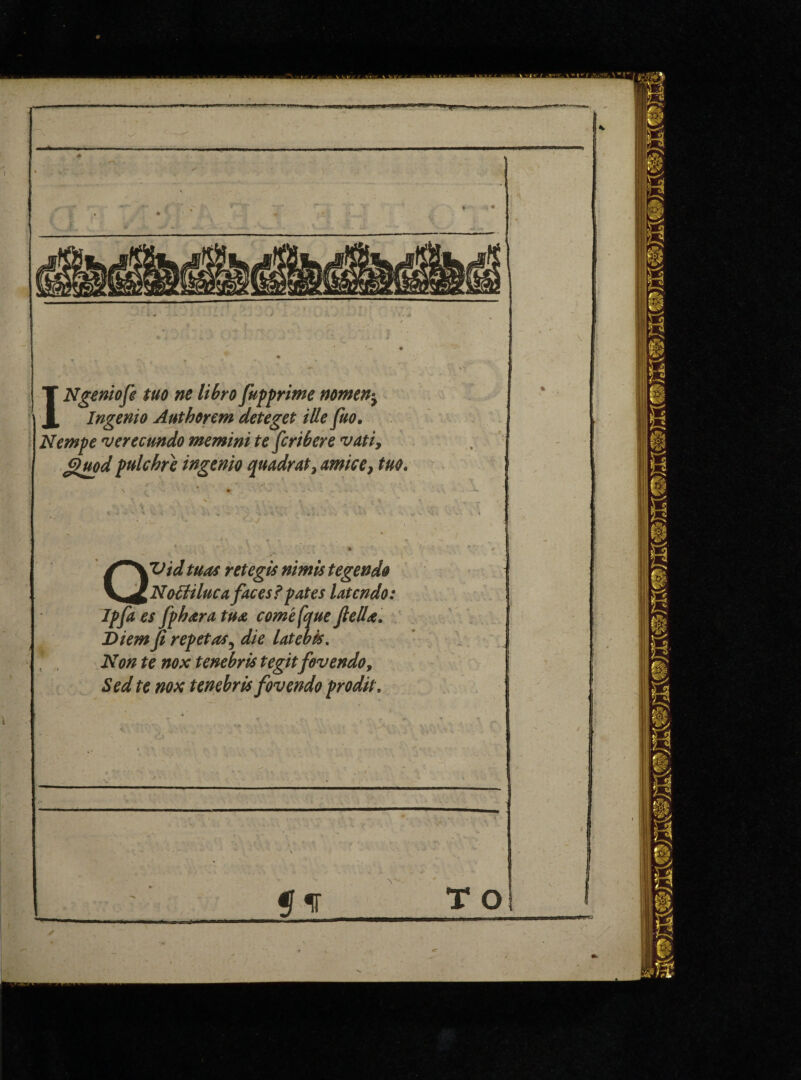 INgenioſe tuo ne libro ſupprime nomen;
Ingenio Authorem deteget ille ſuo.
Nempe verecundo memini te ſcribere vati,
Quod pulchrè ingenio quadrat, amice, tuo.
QVid tuas retegis nimis tegendo
Noctiluca faces? pates latendo:
Ipſa es ſphæra tuæ comèſque ſtellæ.
Diem ſi repetas, die latebis.
Non te nox tenebris tegit fovendo,
Sed te nox tenebris fovendo prodit.
¶¶ TO